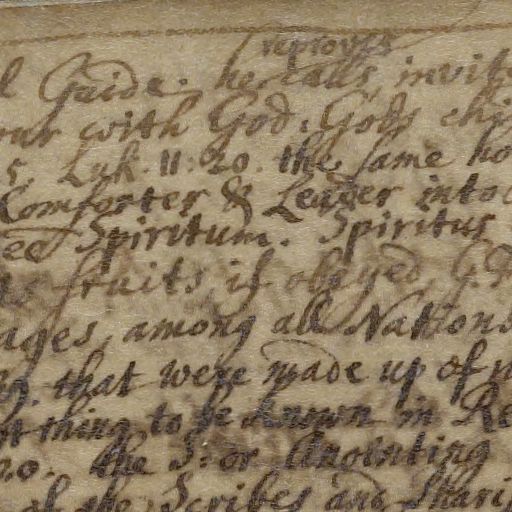 reproves
l Guide. he calls, invit
our with God. Gods
5. Luk. 11: 20. the same ho
Comforter & Leader into
Spiritum. Spiritus
fruits if obeyed,
ages, among all Nations
that were made up of
thing to be known in Re
20. the S: or Anointing
of the Scribes and Phari